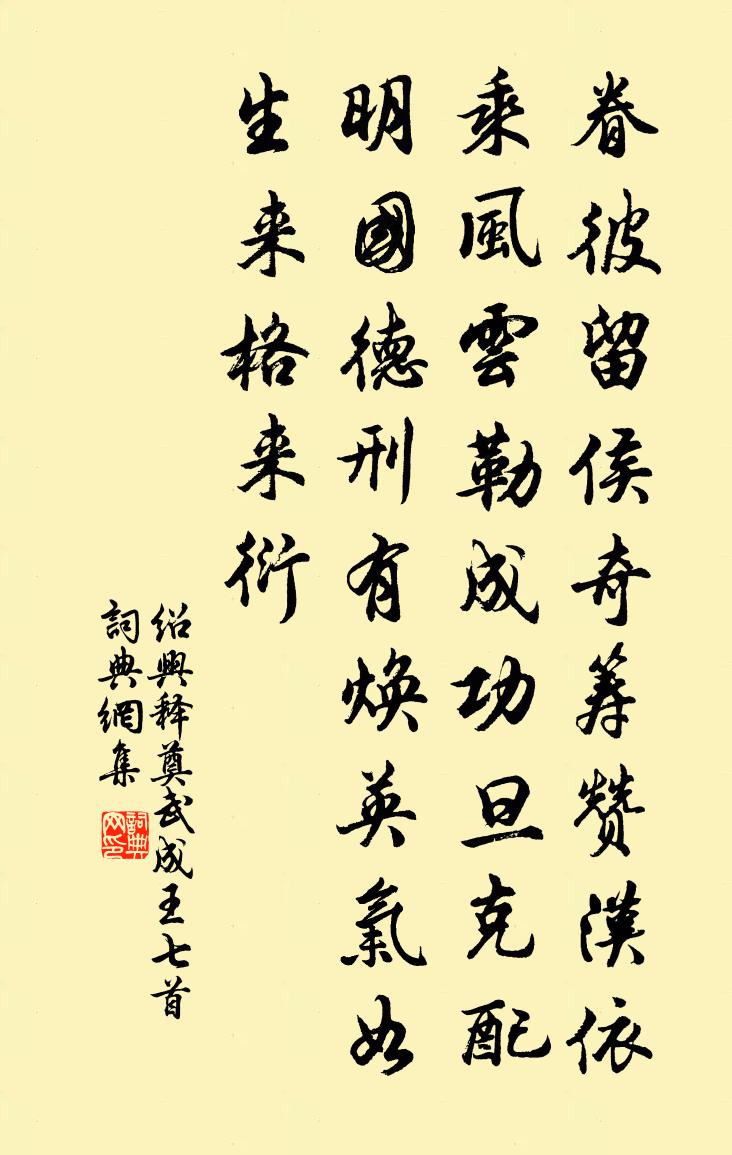 眷彼留侯奇筹赞漢依
乘風雲勒成功旦克配
明國德刑有焕英氣如
生来格来衍
绍興释奠武成王七首
詞典網集
詞典网印